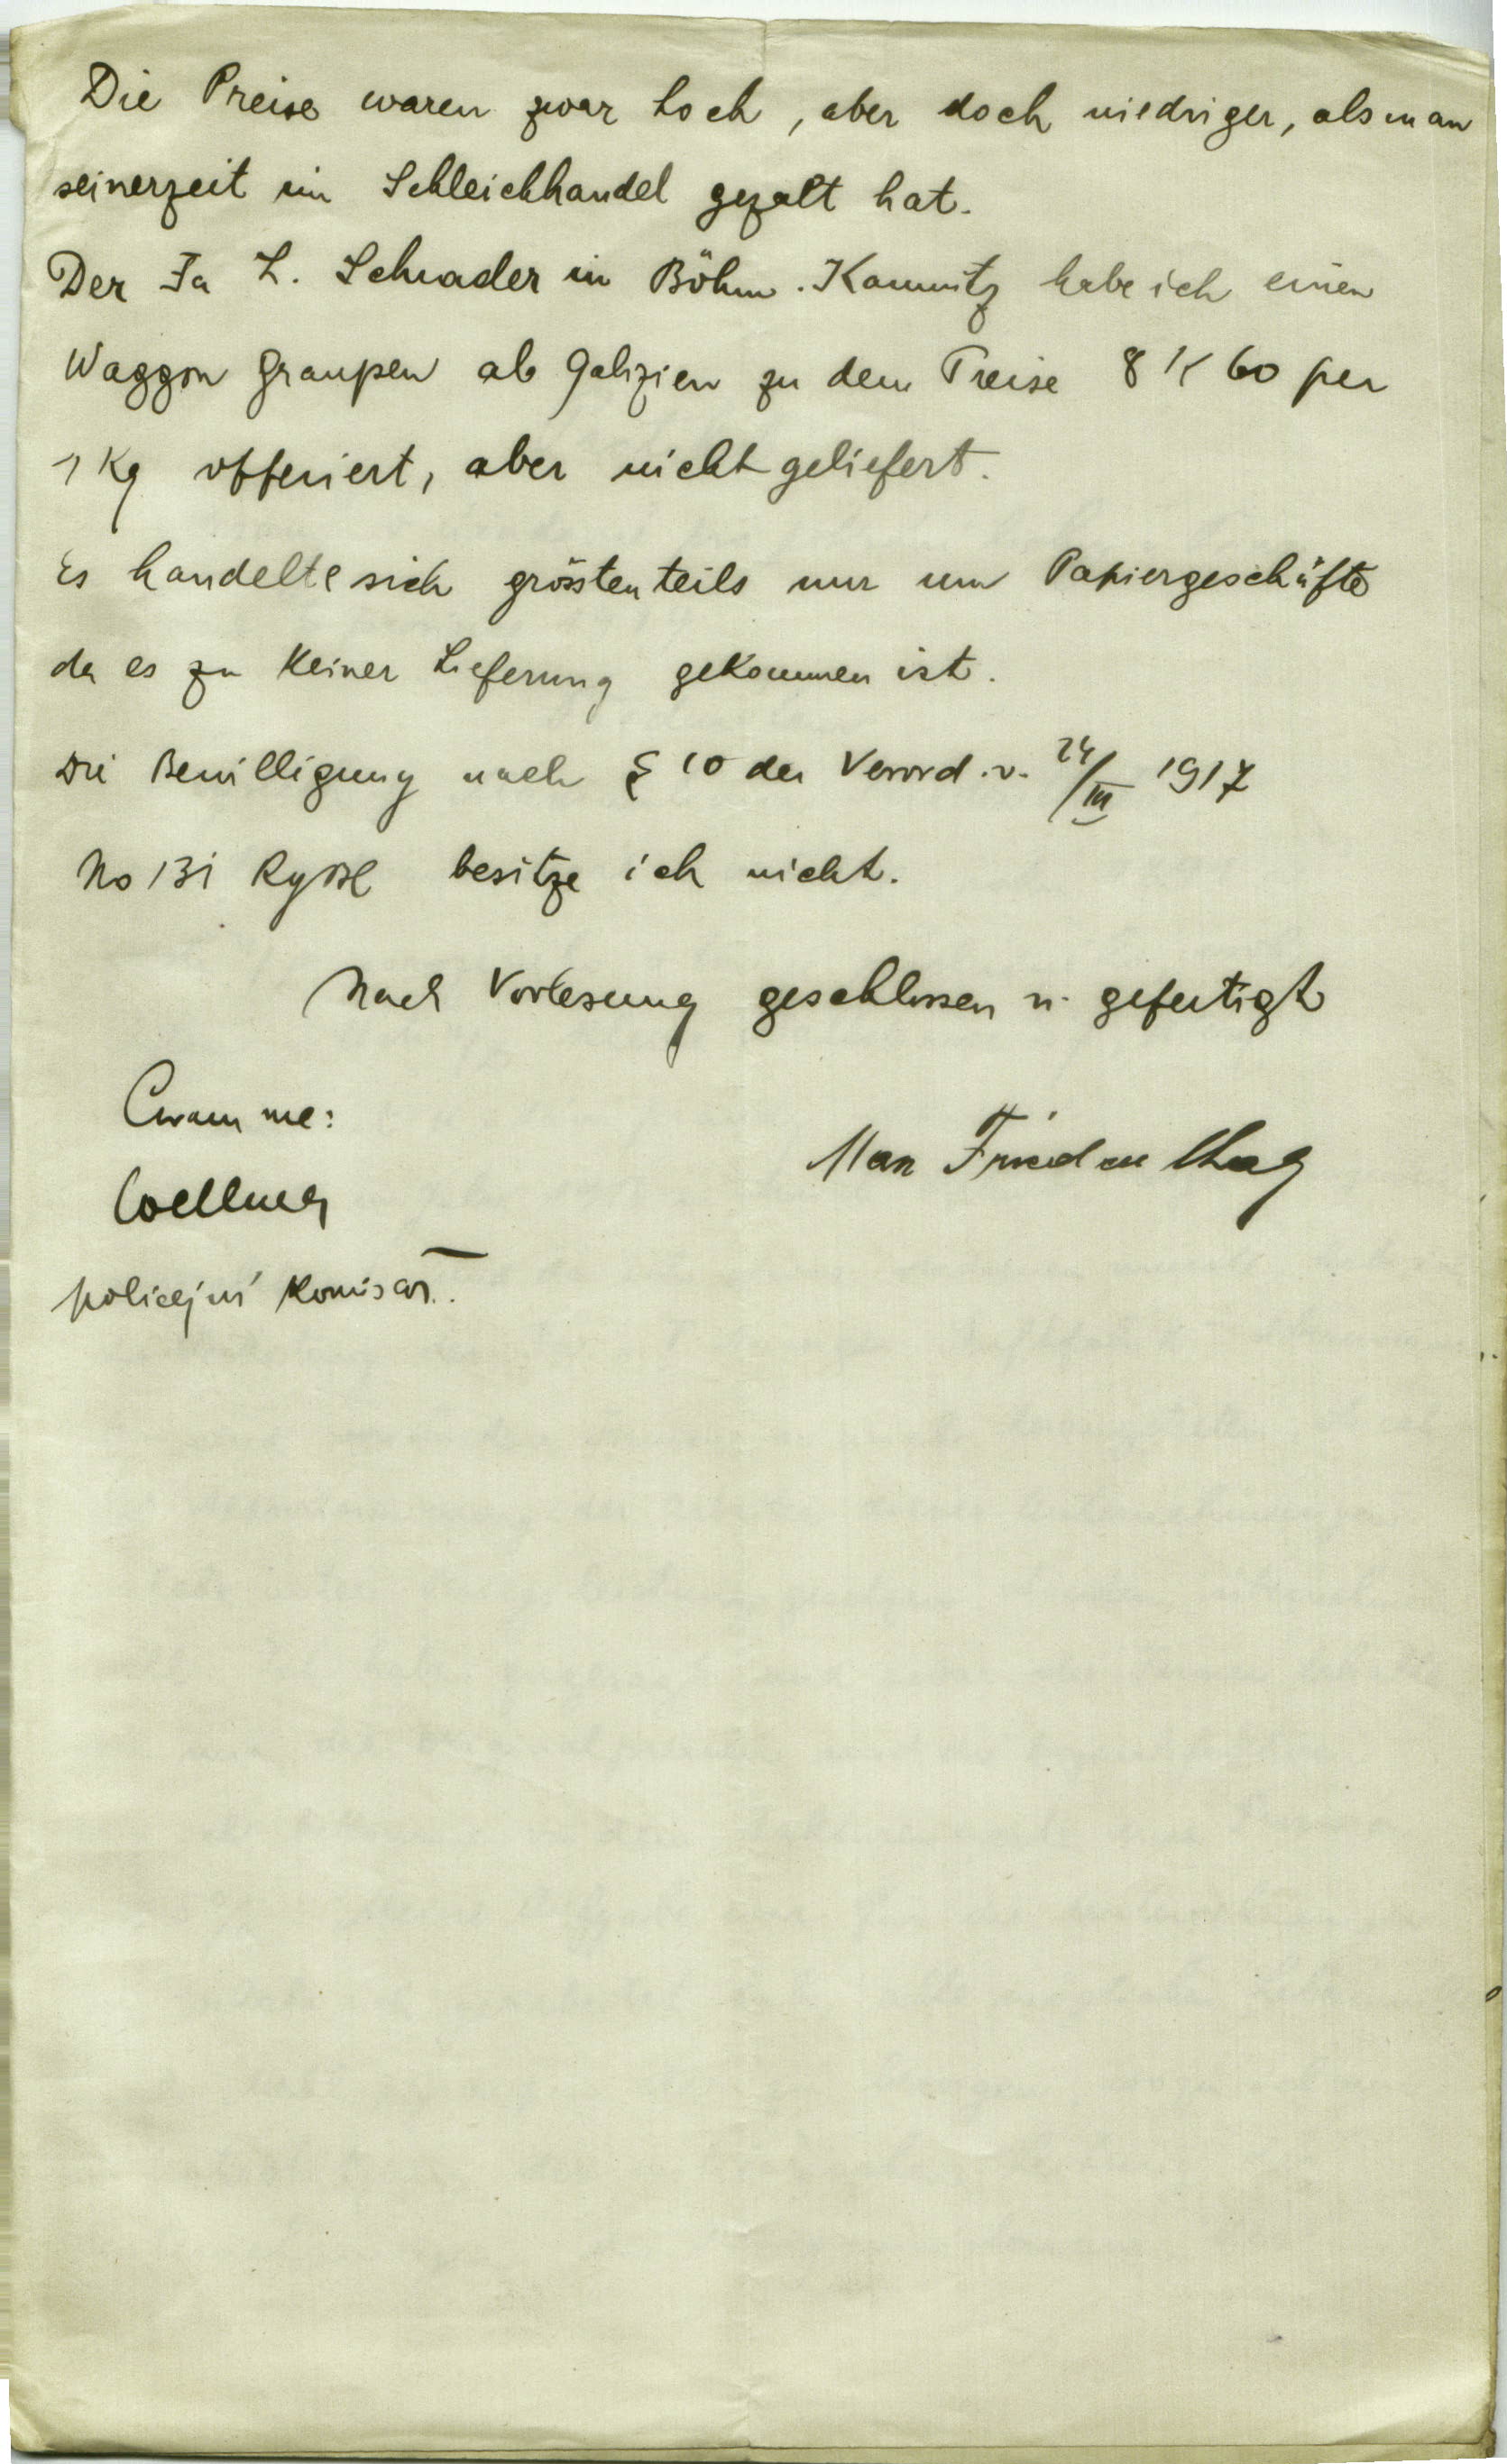 Die Preise waren zwar hoch, aber doch niedriger, als man
seinerzeit im Schleichhandel gezalt hat.
Der Fa L. Schrader in Böhm. Kamnitz habe ich einen
Waggon Graupen ab Galizien zu dem Preise 8 K 60 per
1 Kg offeriert, aber nicht geliefert.
Es handelte sich grösstenteils nur um Papiergeschäfte
da es zu Keiner Lieferung gekommen ist.
Die Bewilligung nach § 10 der Verord. v. 24/III 1917
No 131 RgBl besitze ich nicht.
Nach Vorlesung geschlossen u. gefertigt
Coram me:
Max Friedenthal
policejní Komisař.